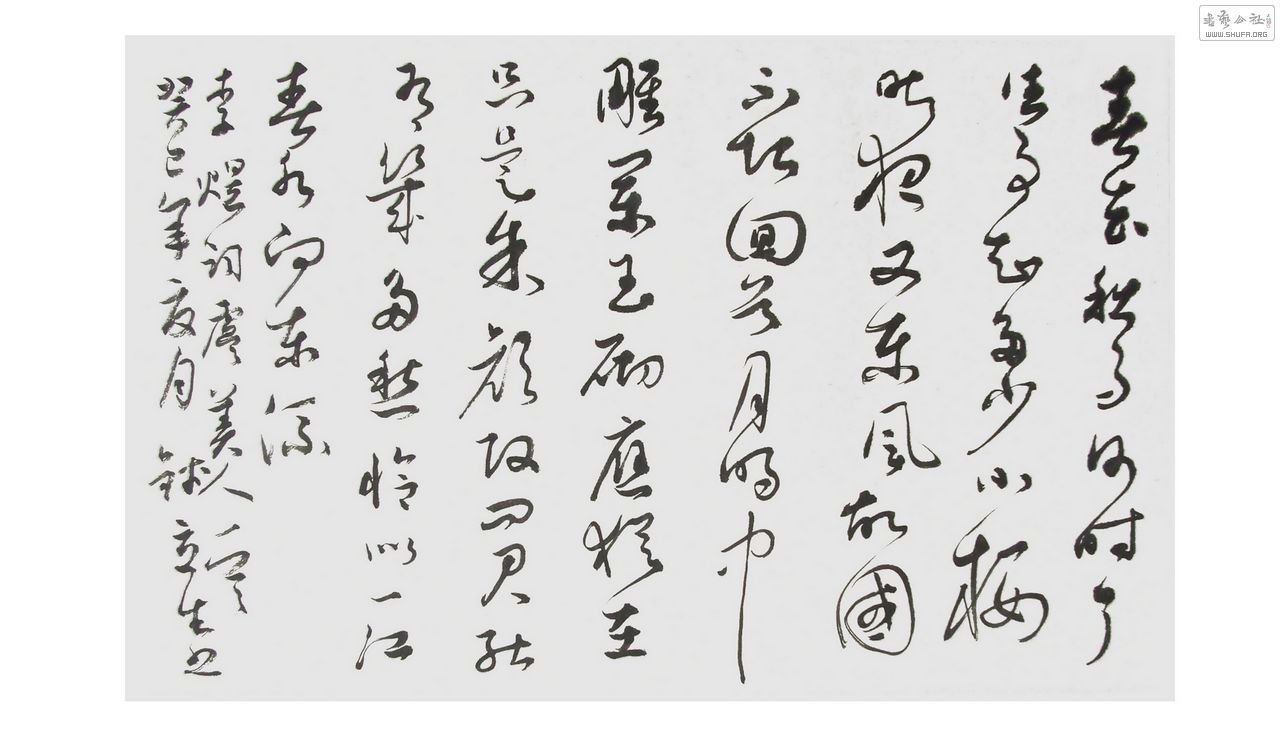 春花秋月何时了
往事知多少小楼
昨夜又東風故國
不堪回首月明中
雕闌玉砌應猶在
只是朱顏改問君能
有幾多愁恰似一江
春水向東流
李煜詞虞美人一首
癸巳年夏月 立生书
书艺公社
WWW.SHUFA.ORG